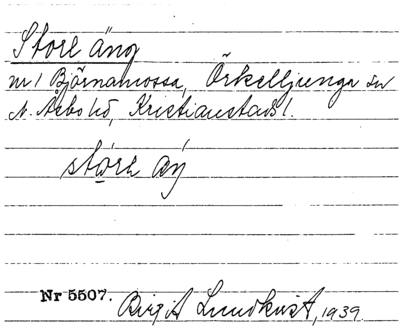 Store äng
nr 1 Björnamossa, Örkelljunga sn
N. Åsbo hd, Kristianstads l.
stóre äŋ
Nr 5507. Birgit Lundkvist, 1939